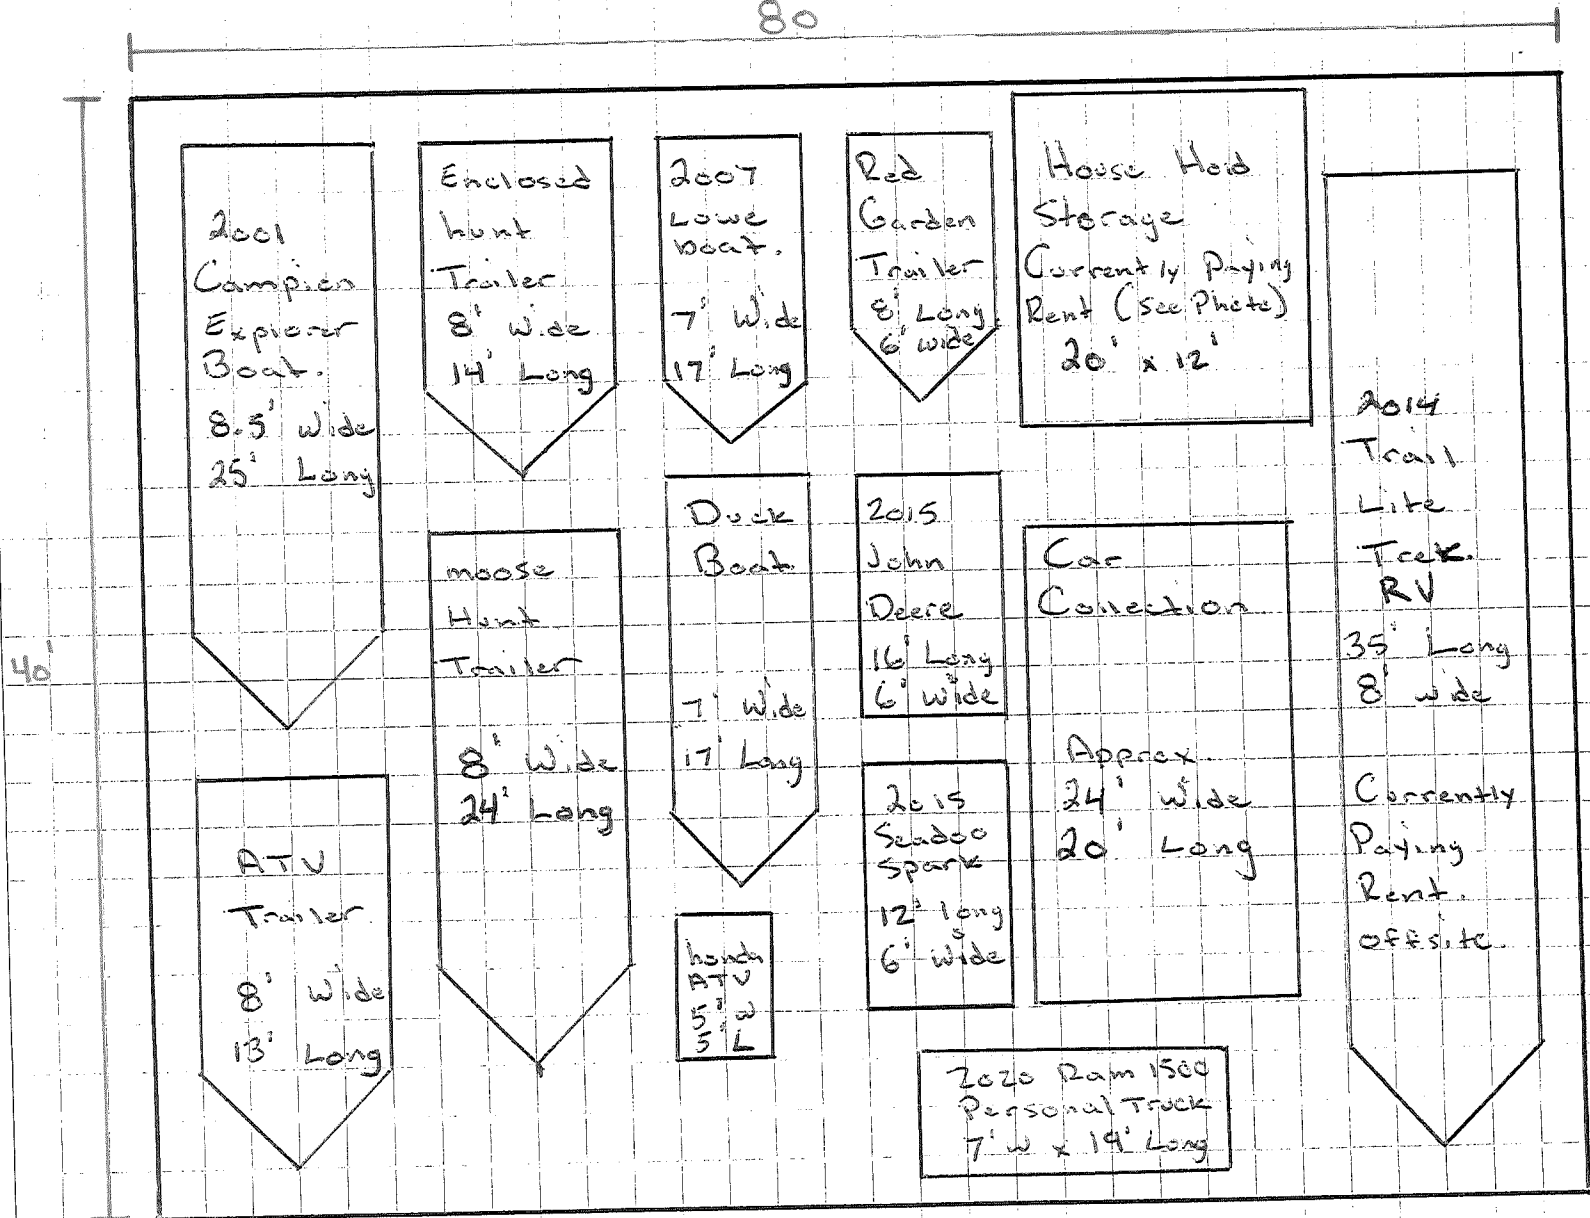 80
40'
2001
Campion
Explorer
Boat.
8.5' Wide
25' Long
Enclosed
hunt
Trailer
8' Wide
14' Long
2007
Lowe
boat.
7' Wide
17' Long
Red
Garden
Trailer
8' Long
6' wide
House Hold
Storage
Currently Paying
Rent (See Photo)
20' x 12'
2014
Trail
Lite
Trek.
RV
35' Long
8' wide
Currently
Paying
Rent.
offsite.
moose
Hunt
Trailer
8' Wide
24' Long
Duck
Boat
7' Wide
17' Long
2015
John
Deere
16' Long
6' Wide
Car
Collection
Approx.
24' Wide
20' Long
ATV
Trailer
8' Wide
13' Long
honda
ATV
5' W
5' L
2015
Seadoo
Spark
12' long
6' wide
2020 Ram 1500
Personal Truck
7' W x 19' Long